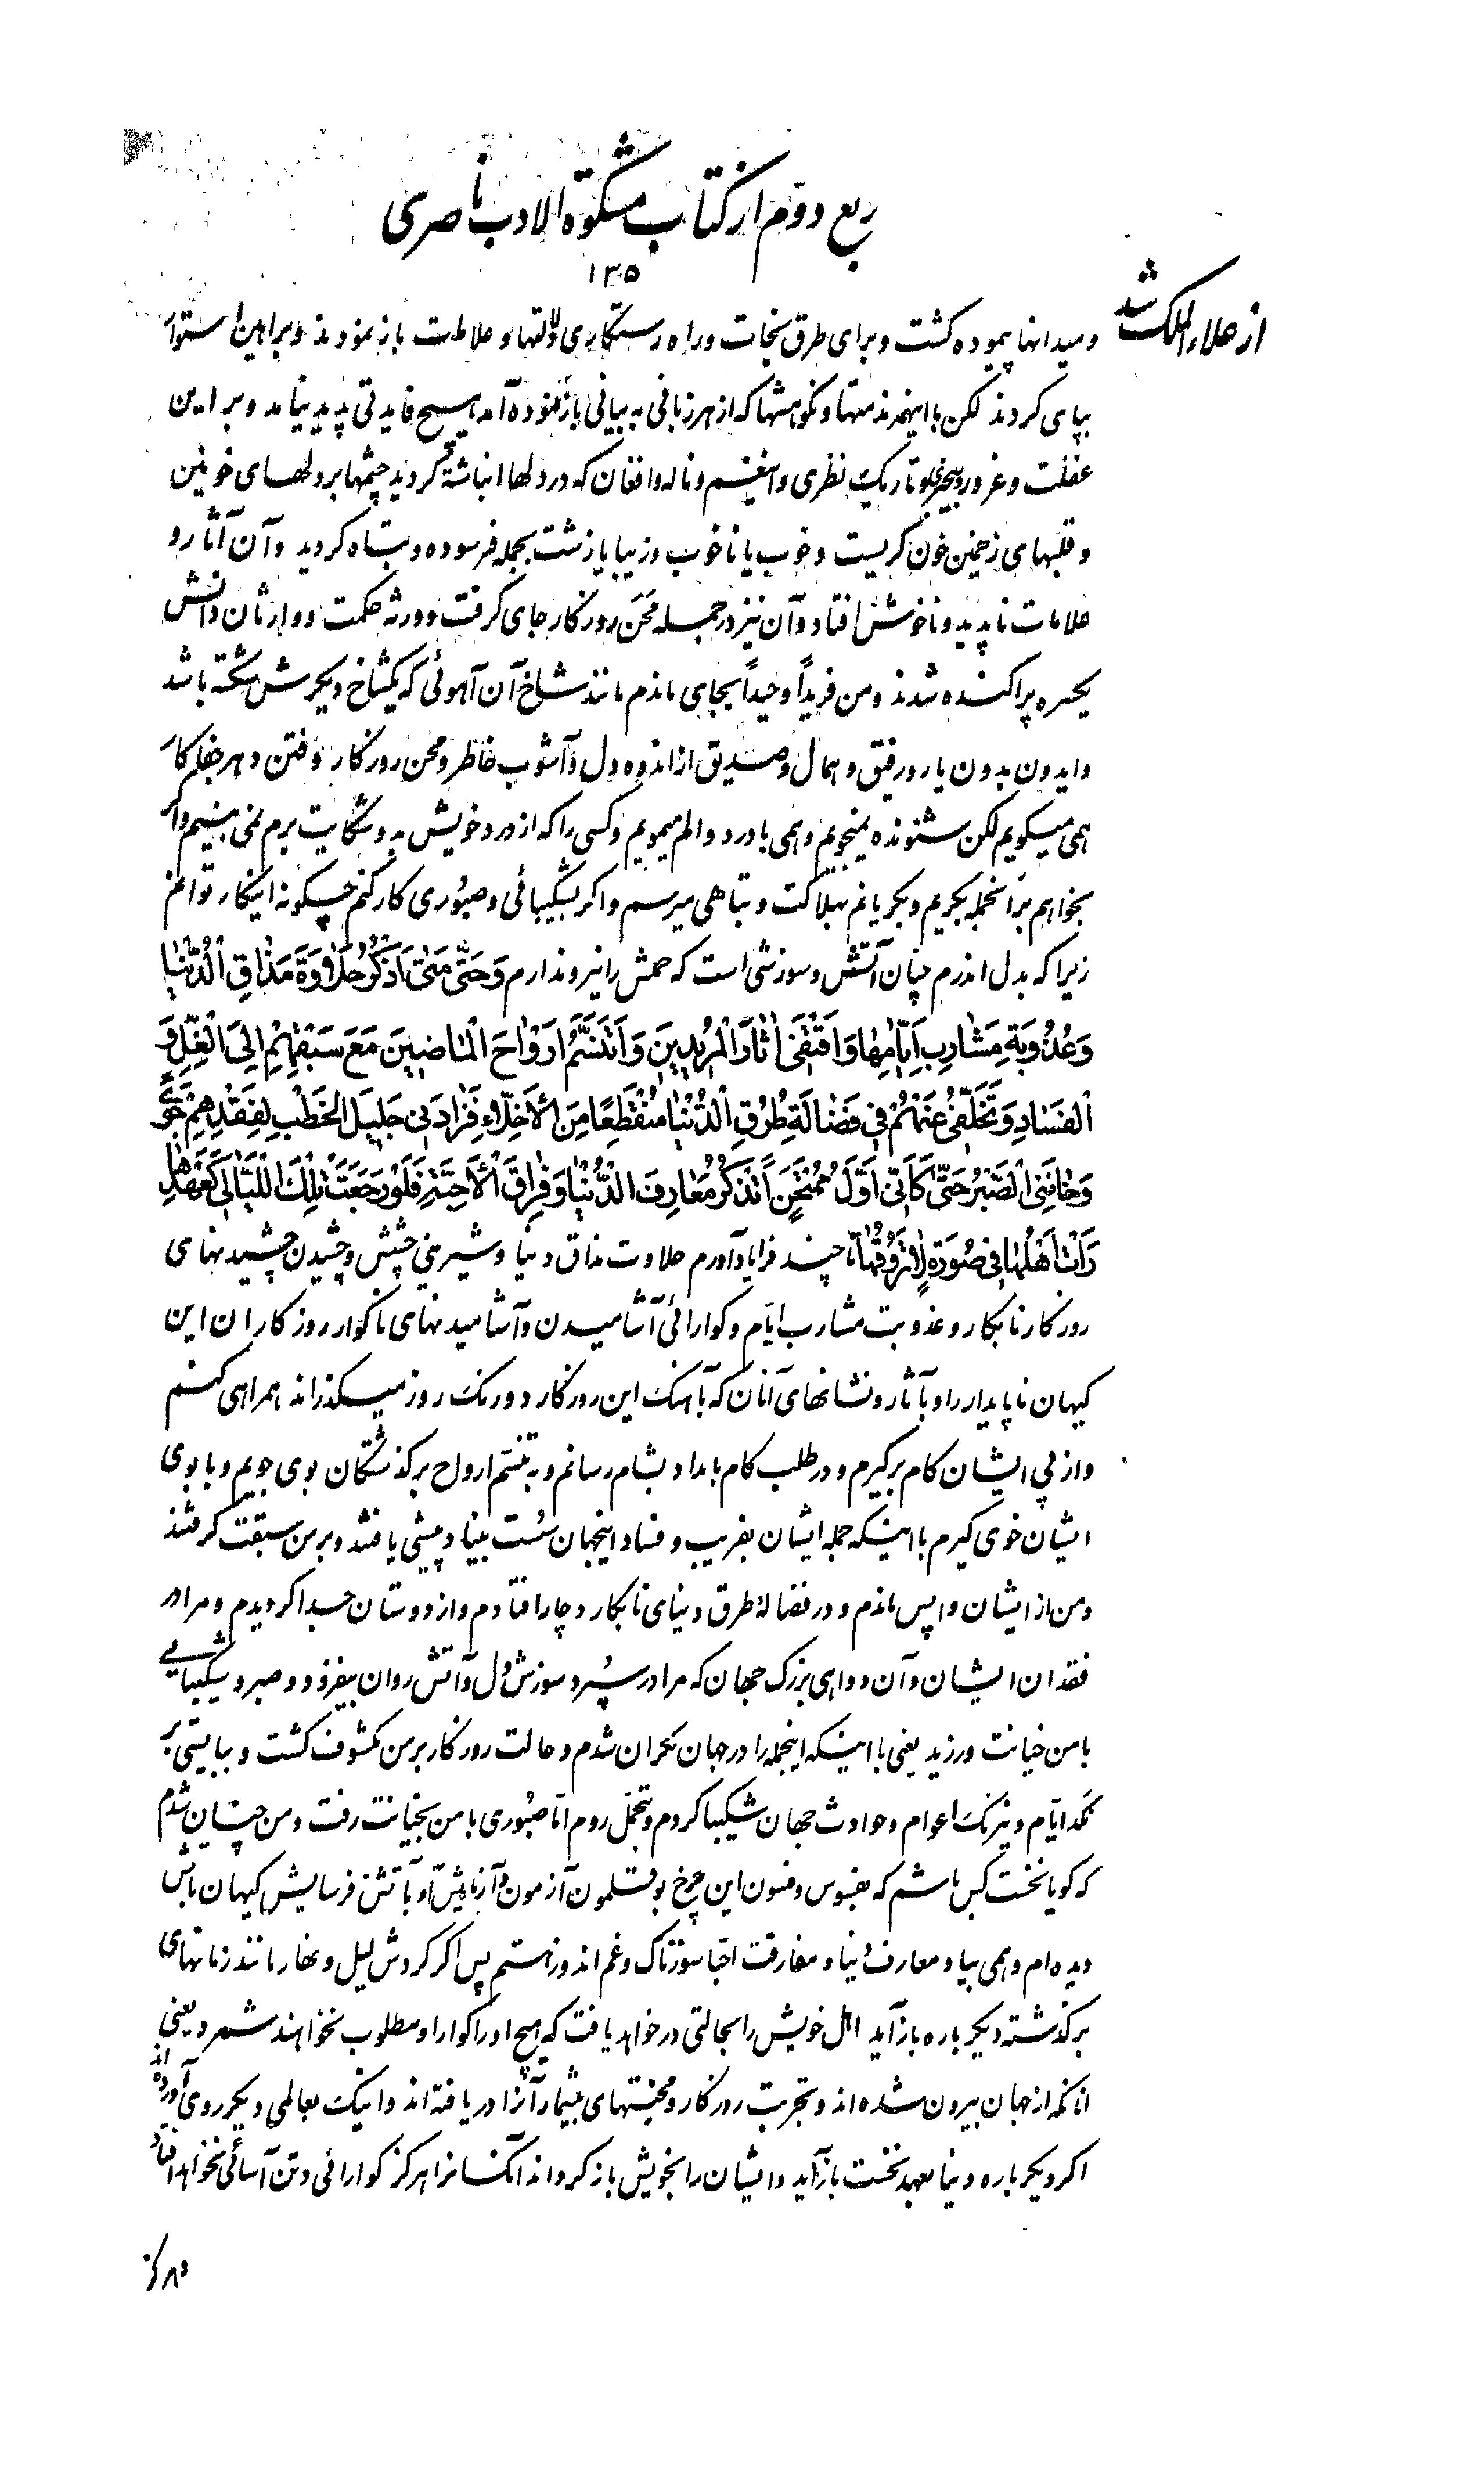 ربع دوّم از کتاب مشکوة الادب ناصری
۱۳۵
از علاء الملک شد
و میدانها پیموده کشت و برای طرق نجات و راه رستکاری دلالتها و علامات باز نمودند و براهین استوار
بپای کردند لکن با اینهمه مذمتها و نکوهشها که از هر زبانی به بیانی باز نموده آمد هیچ فایدتی پدید نیامد و بر این
غفلت و غرور و بیخبری و تاریک نظری و اسف و ناله و افغان که در دلها انباشته کردید چشمها بر دلهای خونین
و قلبهای زخمین خون کریست و خوب یا ناخوب و زیبا یا زشت بجمله فرسوده و تباه کردید و آن آثار و
علامات ناپدید و ناخوش افتاد و آن نیز در جمله محن روزکار جای کرفت و ورثه حکمت و وارثان دانش
یکسره پراکنده شدند و من فریداً وحیداً بجای ماندم مانند شاخ آن آهوئی که یکشاخ دیکرش شکسته باشد
و ایدون بدون یار و رفیق و همال و صدیق از اندوه دل و آشوب خاطر و محن روزکار و فتن دهر جفا کار
همی میکویم لکن شنونده نمیجویم و همی با درد و الم میمویم و کسی را که از درد خویش بدو شکایت برم نمی بینیم و اکر
بخواهم بر آنجمله بکریم و بکریانم بهلاکت و تباهی میرسم و اکر بشکیبائی و صبوری کار کنم چکونه اینکار توانم
زیرا که بدل اندرم چنان آتش و سوزشی است که حملش را نیرو ندارم وَحَتّى مَتىٰ اَذْكُرُ حَلاٰوَةَ مَذٰاقِ الدُّنْيٰا
وَعُذُوبَةَ مَشٰارِبِ اَيّٰامِهٰا وَاَقْتَفى اٰثٰارَ الْمُرْيدِينَ وَاَتَنَسَّمُ اَرْوٰاحَ الْمٰاضِينَ مَعَ سَبْقِهِمْ اِلَى الْغِلِّ وَ
الْفَسٰادِ وَتَخَلُّفى عَنْهُمْ فى فَضٰالَةِ طُرُقِ الدُّنْيٰا مُنْقَطِعًا مِنَ الْاَخِلّاٰءِ فَزٰادَنى جَليلُ الْخَطْبِ لِفَقْدِهِمْ جَوًى
وَخٰانَنِى الصَّبْرُ حَتّى كَاَنّى اَوَّلُ مُمْتَحَنٍ اَتَذَكَّرُ مَعٰارِفَ الدُّنْيٰا وَفِرٰاقَ الْاَحِبَّةِ فَلَوْ رَجَعَتْ تِلْكَ اللَّيٰالى كَعَهْدِهٰا
رَاَتْ اَهْلَهٰا فى صُورَةٍ لاٰ تَرُوقُهٰا تا چند فرا یاد آورم حلاوت مذاق دنیا و شیرینی چشش و چشیدن چشیدنهای
روزکار نابکار و عذوبت مشارب ایّام و کوارائی آشامیدن و آشامیدنهای ناکوار روزکاران این
کیهان ناپایدار را و بآثار و نشانهای آنان که بآهنک این روزکار دورنک روز میکذراند همراهی کنم
و از پی ایشان کام برکیرم و در طلب کام بامداد بشام رسانم و به تنسّم ارواح برکذشتکان بوی جویم و با بوی
ایشان خوی کیرم با اینکه جمله ایشان بفریب و فساد اینجهان سُست بنیاد پیشی یافتند و بر من سبقت کرفتند
و من از ایشان واپس ماندم و در فضالهٔ طرق دنیای نابکار دچار افتادم و از دوستان جدا کردیدم و مرا در
فقدان ایشان و آن دواهی بزرک جهان که مرا در سپرد سوزش دل و آتش روان بیفزود و صبر و شکیبائی
با من خیانت ورزید یعنی با اینکه اینجمله را در جهان نکران شدم و حالت روزکار بر من مکشوف کشت و ببایستی بر
نکد ایّام و نیرنک اعوام و حوادث جهان شکیبا کردم و بتحمّل روم امّا صبوری با من بخیانت رفت و من چنان شدم
که کویا نخست کس باشم که بفسوس و فسون این چرخ بوقلمون آزمون و آزمایش و بآتش فرسایش کیهان تابش
دیده ام و همی بیاد معارف دنیا و مفارقت احبّا سوزناک و غم اندوز هستم پس اکر کردش لیل و نهار مانند زمانهای
برکذشته دیکر باره باز آید اهل خویش را بحالتی درخواهد یافت که هیچ او را کوارا و مطلوب نخواهند شمرد یعنی
آنانکه از جهان بیرون شده اند و تجربت روزکار و محنتهای بیشمار آنرا دریافته اند و اینک بعالمی دیکر روی آورده اند
اکر دیکر باره دنیا بعهد نخست باز آید و ایشان را بخویش باز کرداند آنکسانرا هرکز کوارائی و تن آسائی نخواهد افتاد
هرکز